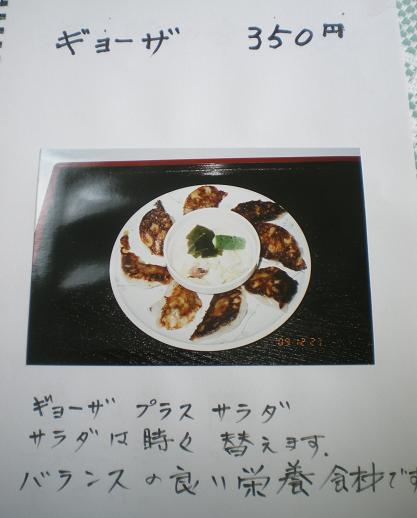 ギョーザ 350円
'09 12 27
ギョーザ プラス サラダ
サラダは時々 替えます.
バランスの良い栄養食材です